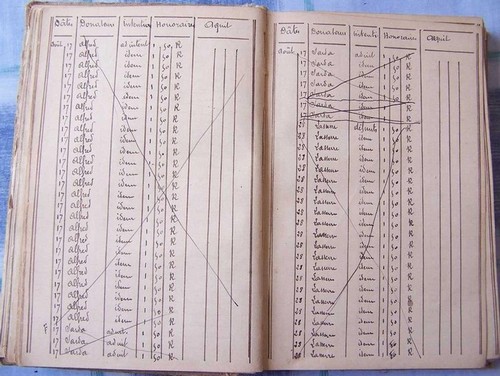 Dates Donataires Intention Honoraires Acquit
Août 17 Alfred ad intent 1 50 R
17 Alfred idem 1 50 R
17 Alfred idem 1 50 R
17 Alfred idem 1 50 R
17 Alfred idem 1 50 R
17 Alfred idem 1 50 R
17 Alfred idem 1 50 R
17 Alfred idem 1 50 R
17 Alfred idem 1 50 R
17 Alfred idem 1 50 R
17 Alfred idem 1 50 R
17 Alfred idem 1 50 R
17 Alfred idem 1 50 R
17 Alfred idem 1 50 R
17 Alfred idem 1 50 R
17 Alfred idem 1 50 R
17 Alfred idem 1 50 R
17 Alfred idem 1 50 R
17 Alfred idem 1 50 R
17 Alfred idem 1 50 R
17 Alfred idem 1 50 R
17 Alfred idem 1 50 R
17 Alfred idem 1 50 R
17 Alfred idem 1 50 R
17 Alfred idem 1 50 R
17 Alfred idem 1 50 R
17 Alfred idem 1 50 R
17 Sarda ad int 1 50 R
17 Sarda ad int 1 50 R
17 Sarda ad int 1 50 R
Dates Donataires Intentions Honoraires Acquit
Août 17 Sarda ad int 1 50 R
17 Sarda idem 1 50 R
17 Sarda idem 1 50 R
17 Sarda idem 1 50 R
17 Sarda idem 1 50 R
17 Sarda idem 1 50 R
17 Sarda idem 1 50 R
28 Lassere défunts 1 50 R
28 Lassere idem 1 50 R
28 Lassere idem 1 50 R
28 Lassere idem 1 50 R
28 Lassere idem 1 50 R
28 Lassere idem 1 50 R
28 Lassere idem 1 50 R
28 Lassere idem 1 50 R
28 Lassere idem 1 50 R
28 Lassere idem 1 50 R
28 Lassere idem 1 50 R
28 Lassere idem 1 50 R
28 Lassere idem 1 50 R
28 Lassere idem 1 50 R
28 Lassere idem 1 50 R
28 Lassere idem 1 50 R
28 Lassere idem 1 50 R
28 Lassere idem 1 50 R
28 Lassere idem 1 50 R
28 Lassere idem 1 50 R
28 Lassere idem 1 50 R
28 Lassere idem 1 50 R